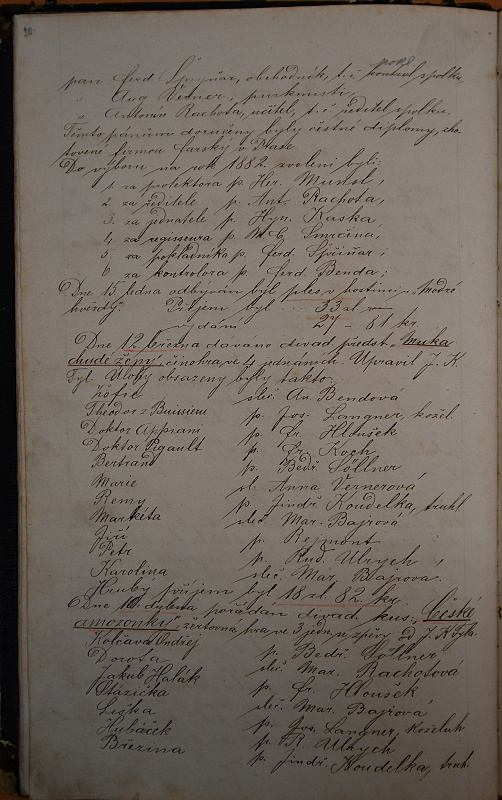 20.
pan Ferd Špinar, obchodník, t. č. kontrol spolku,
„ Aug Verner, purkmistr,
„ Antonín Rachota, učitel, t. č. ředitel spolku.
Těmto pánům doručeny byly čestné diplomy, zho
tovené firmou Farský v Praze.
Do výboru na rok 1882. zvoleni byli:
1. za protektora p. Her. Munsl,
2. za ředitele p. Ant. Rachota,
3. za jednatele p. Hyn. Kaska
4. za regisseura p. Smrčina,
5. za pokladníka p. Ferd. Špinar;
6. za kontrolora p. Ferd. Benda;
Dne 15 ledna odbýván byl ples v hostinci u „Modré
hvězdy". Příjem byl ... 33 zl.
vydání 27 – 61 kr.
Dne 12. března dáváno divad. předst. „Matka
chudé ženy", činohra ve 4 jednáních. Upravil J. K.
Tyl. Úlohy obsazeny byly takto:
Žofie slč. An. Bendová
Theodor z Buissieru p. Jos. Langner, kožel.
Doktor Appiani p. Fr. Hloušek
Doktor Pegault p. Fr. Koch
Bertrand p. Bedř. Söllner
Marie sl. Anna Vernerová,
Remy p. Jindř. Koudelka, truhl
Markéta slč. Mar. Bajrová
Jiří p. Rejmont
Petr p. Rud. Ulrych,
Karolina slč. Mar. Bajrova.
Hrubý příjem byl 18 zl. 82 kr.
Dne 10. dubna pořádán divad. kus: „České
amazonky", žertovna hra ve 3 jedn. se zpěvy od J. K Tyla.
Kolčava Ondřej p. Bedř. Söllner
Dorota slč. Mar. Rachotová
Jakub Halák p. Fr. Hloušek
Stázička slč. Mar. Bajrová
Liška p. Jos. Langner, koželuh
Hubáček p. R. Ulrych
Březina p. Jindř. Koudelka, truh.